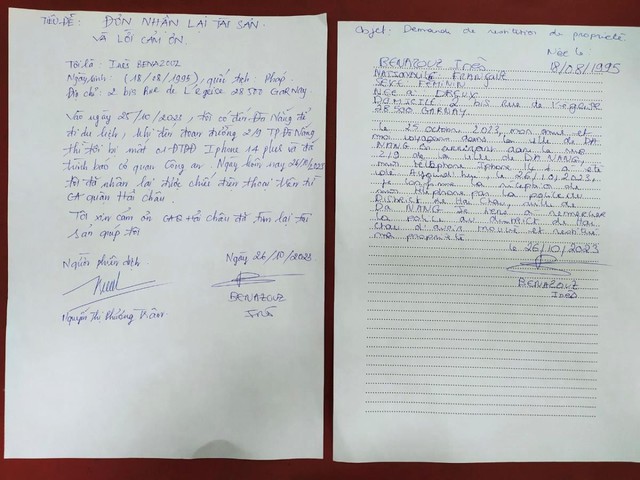 TIÊU ĐỀ: ĐƠN NHẬN LẠI TÀI SẢN
VÀ LỜI CẢM ƠN.
Tôi là: Inès BENAZOUZ
Ngày sinh: (18/08/1995), quốc tịch: Pháp.
Địa chỉ: 2 bis Rue de L'égeise 28500 GARNAY.
Vào ngày 25/10/2023, tôi có đến Đà Nẵng để
đi du lịch, khi đến đoạn đường 2/9 TP Đà Nẵng
thì tôi bị mất 01 ĐTDĐ Iphone 14 plus và đã
trình báo cơ quan Công an. Ngày hôm nay 26/10/2023
tôi đã nhận lại được chiếc điện thoại trên tại
CA quận Hải Châu.
Tôi xin cảm ơn CAQ Hải Châu đã tìm lại tài
sản giúp tôi
Người phiên dịch
Ngày 26/10/2023
Nguyễn Thị Phương
BENAZOUZ
Inès
Objet: Demande de restitution de propriété.
Née le
BENAZOUZ Inès 18/08/1995
NATIONALITÉ FRANÇAISE
SEXE FÉMININ
NÉE À DREUX
DOMICILE 2 bis Rue de l'égeise
28.500 GARNAY.
le 25 octobre 2023, mon ami et
moi voyagions dans la ville de DA
NANG En arrivant dans la rue
2/9 de la ville de DA NANG,
mon téléphone Iphone 14 + a été
volé Aujourd'hui le 26/10/2023,
je confirme la réception de
mon téléphone par la police du
District de Hai Chau, ville de
Da NANG Je tiens à remercier
la police du District de Hai
Chau d'avoir trouvé et restitué
ma propriété.
le 26/10/2023
BENAZOUZ
Inès